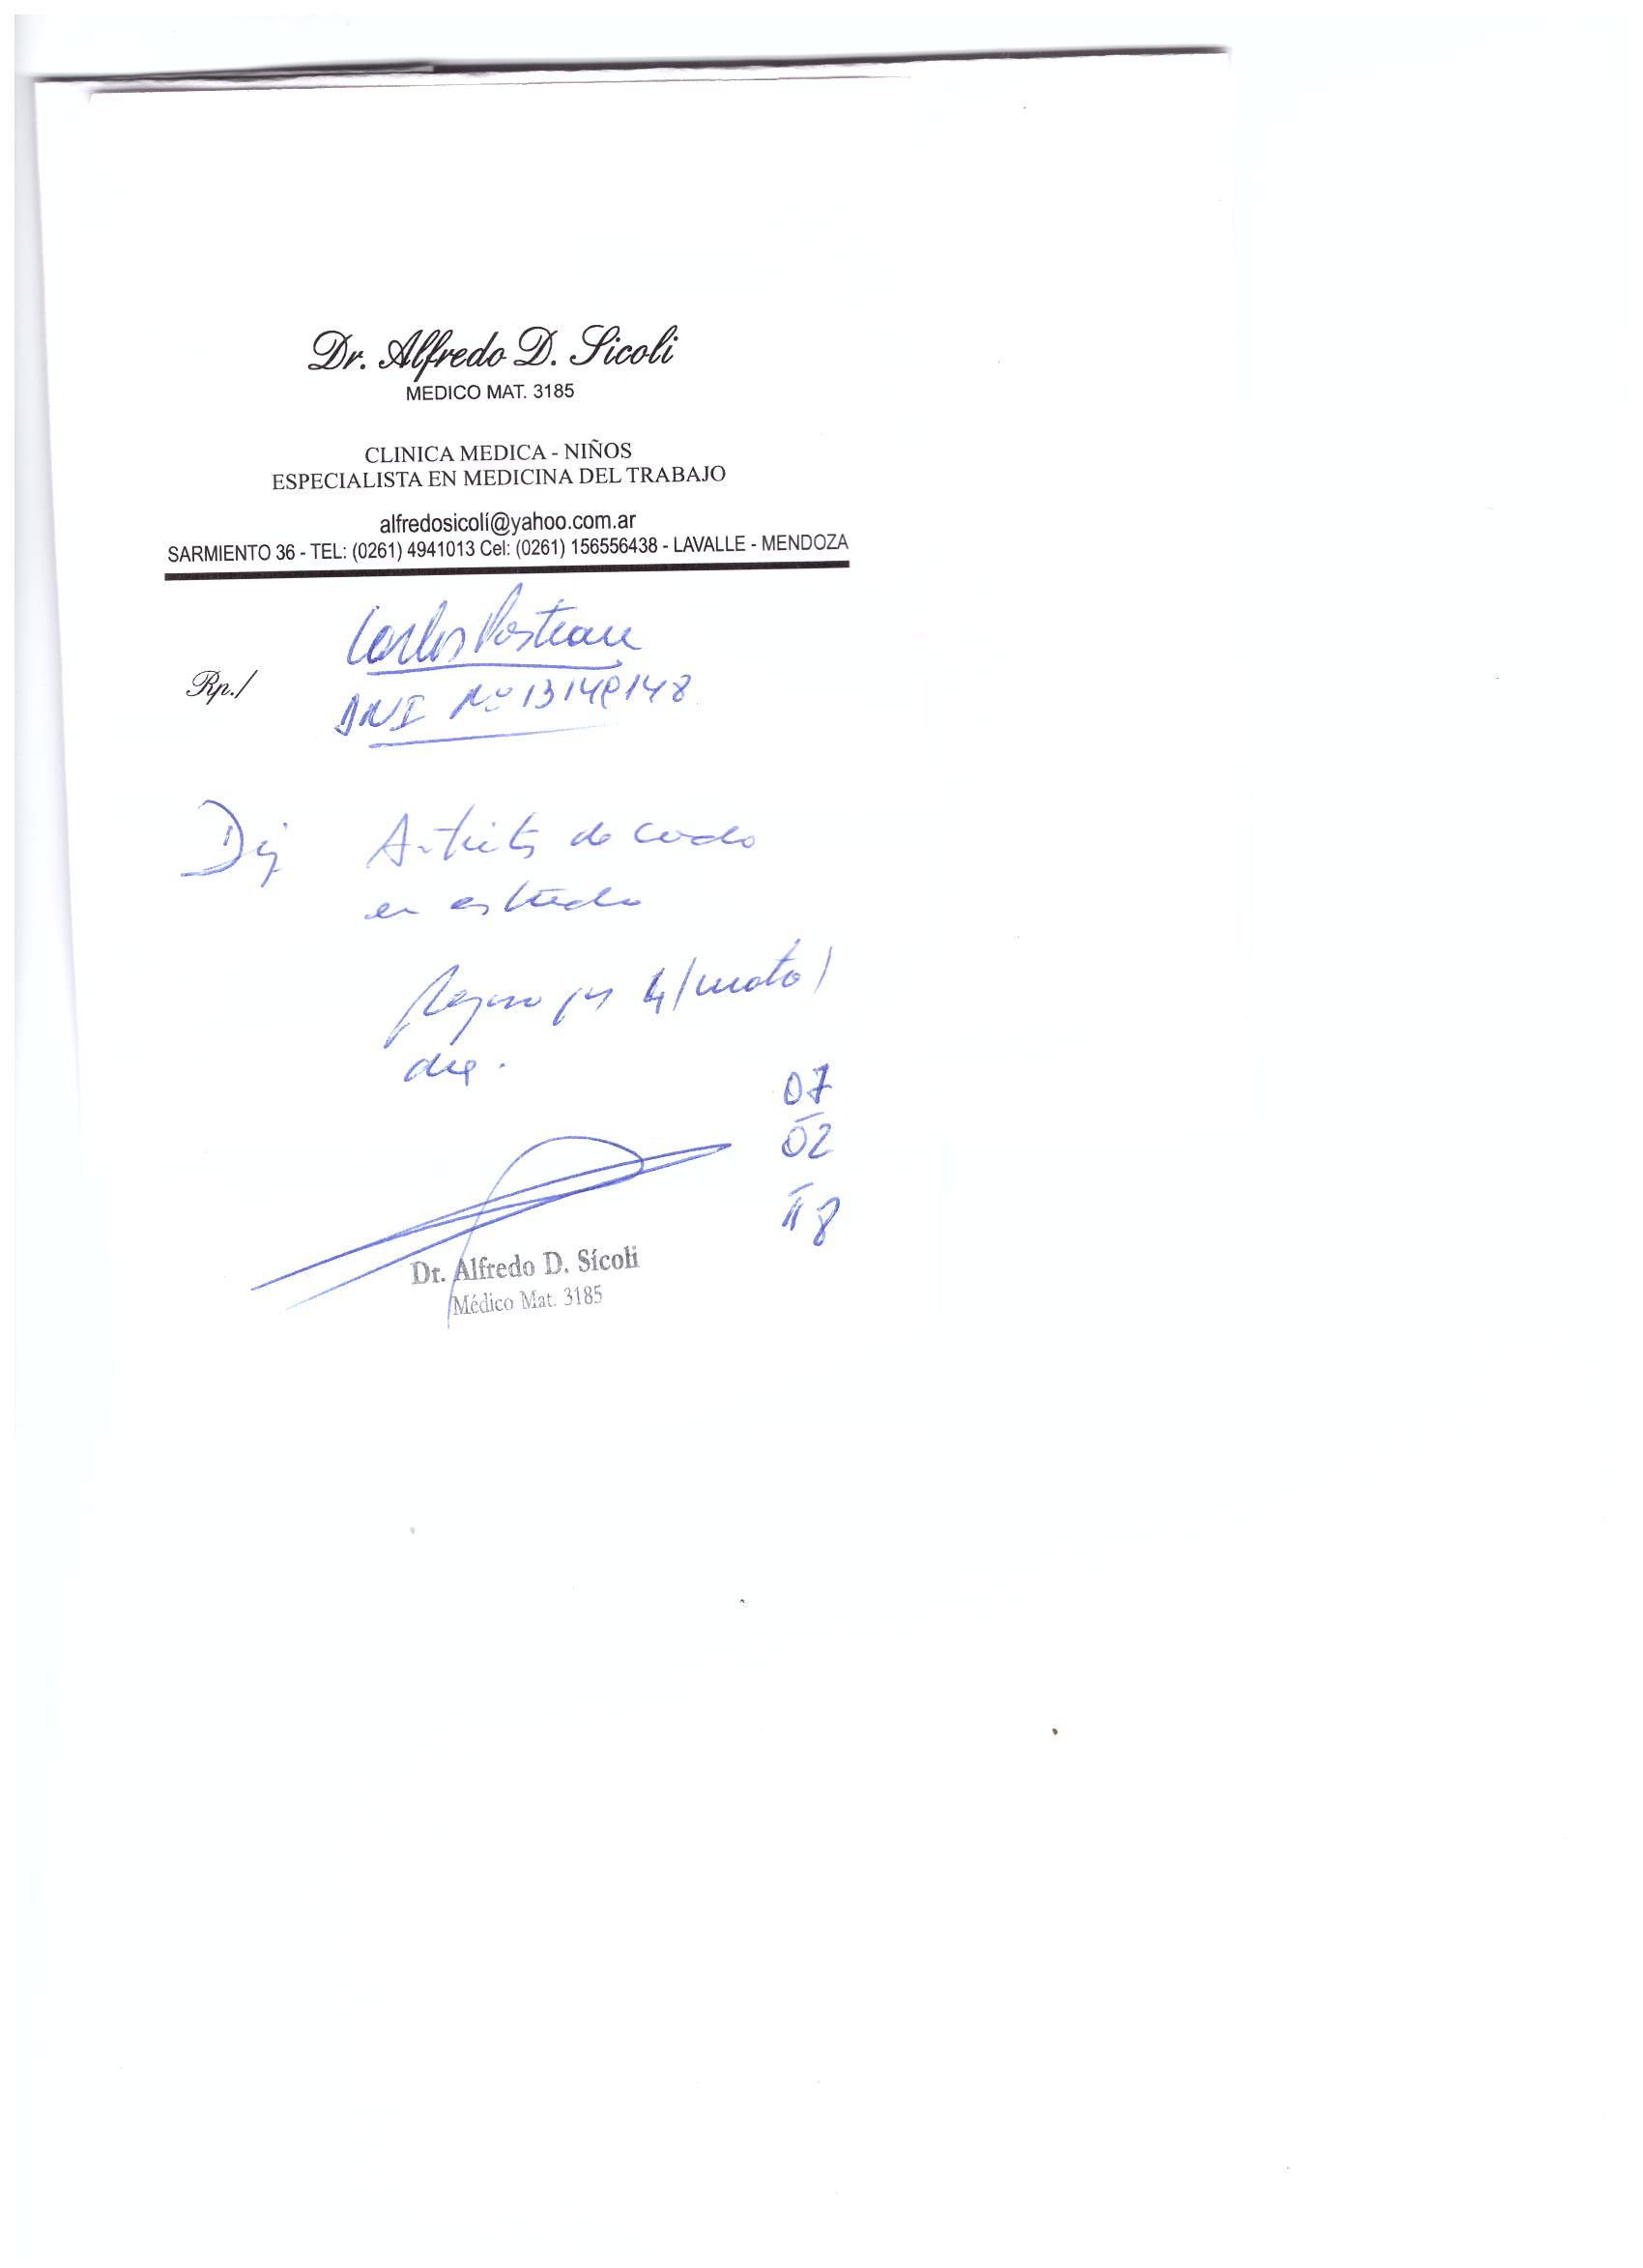 Dr. Alfredo D. Sicoli
MEDICO MAT. 3185
CLINICA MEDICA - NIÑOS
ESPECIALISTA EN MEDICINA DEL TRABAJO
alfredosicolí@yahoo.com.ar
SARMIENTO 36 - TEL: (0261) 4941013 Cel: (0261) 156556438 - LAVALLE - MENDOZA
Carlos
Rp./
DNI Nº
Artritis de codo
en estudio
4/cuatro/
07
02
18
Dr. Alfredo D. Sícoli
Médico Mat. 3185